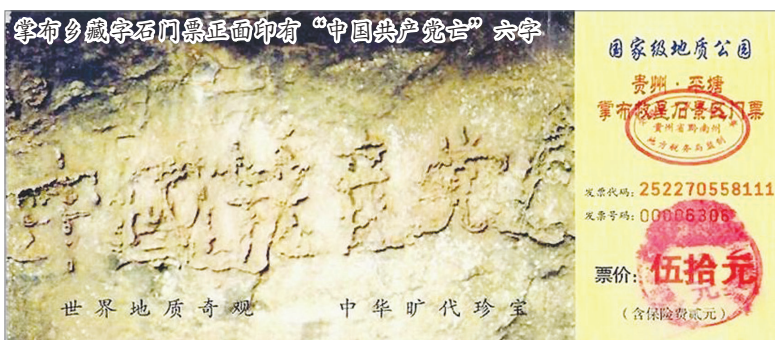 掌布乡藏字石门票正面印有“中国共产党亡”六字
中国共产党亡
世界地质奇观 中华旷代珍宝
国家级地质公园
贵州·平塘
掌布救星石景区门票
贵州省黔南州
地方税务局监制
发票代码：252270558111
发票号码：00006306
票价：伍拾元
（含保险费贰元）